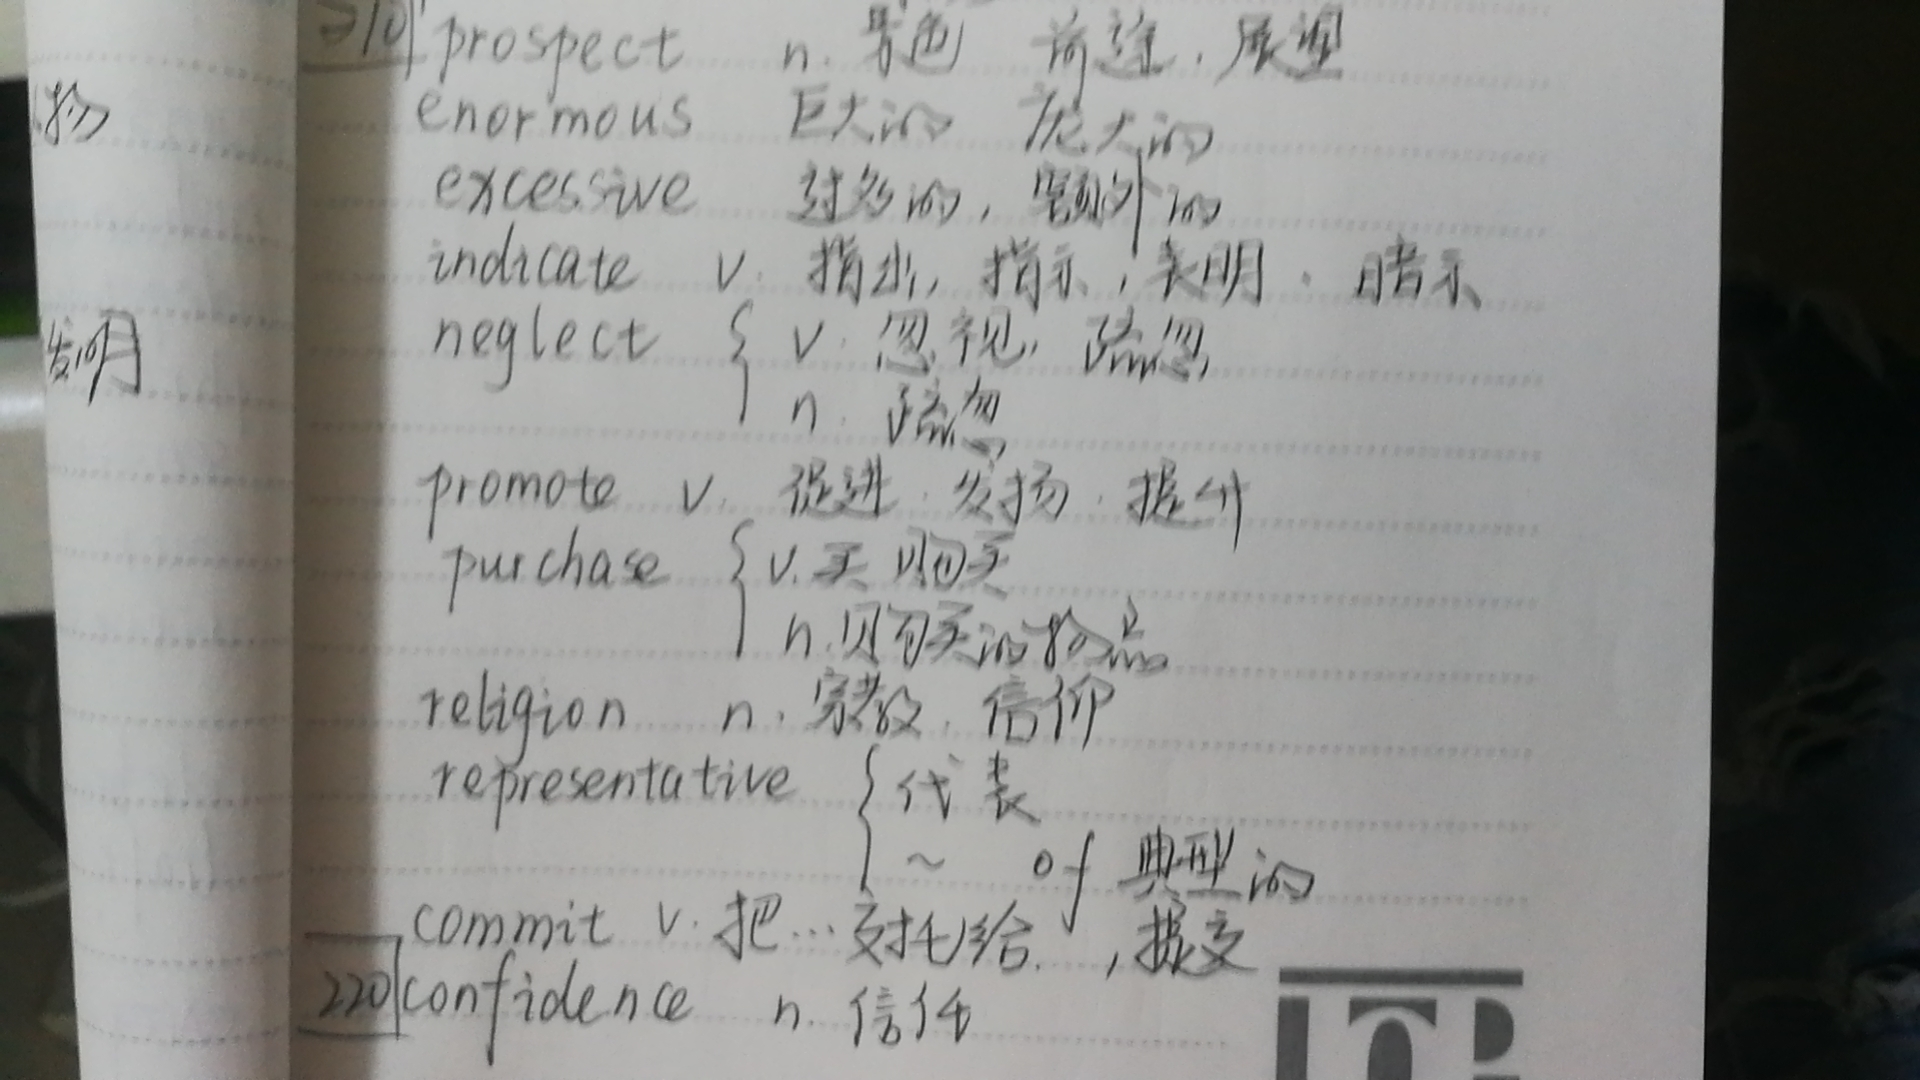 210 prospect n. 景色 前途. 展望
enormous 巨大的 庞大的
物
excessive 过多的, 额外的
indicate v. 指出, 指示, 表明. 暗示
neglect { v. 忽视, 疏忽
发明
n. 疏忽
promote v. 促进. 发扬. 提升
purchase { v. 买 购买
n. 购买的物品
religion n. 宗教. 信仰
representative { 代表
~ of 典型的
commit v. 把…交托给, 提交
220 confidence n. 信任